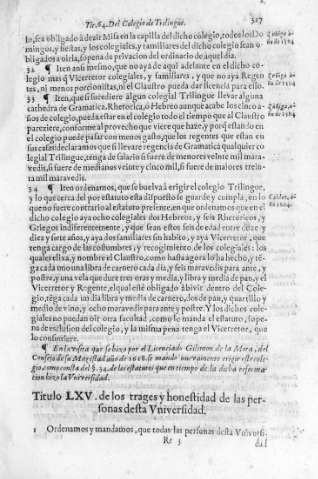 Tit. 64. Del Colegio de Trilingue. 327
lo, sea obligado à dezir Misa en la capilla del dicho colegio, todos los Do
mingos, y fiestas, y los colegiales, y familiares del dicho colegio sean o-
bligados a oirla, so pena de privacion del ordinario de aquel dia.
32 ¶ Iten ansi mesmo, que no aya de aqui adelante en el dicho co
legio mas q̃ Vicerretor colegiales, y familiares, y que no aya Regen
tes, ni menos porcionistas, ni el Claustro pueda dar licencia para ello.
33 ¶ Iten, que si sucediere algun colegial Trilingue llevar alguna
cathedra de Gramatica, Rhetorica, ò Hebreo aunque acabe los ocho a-
ños de colegio, pueda estar en el colegio todo el tiempo que al Claustro
pareziere, conforme al provecho que viere que haze, y porq̃ estando en
el colegio puede passar con menos gasto, que los regentes que estan en
sus casas declaramos que si llevare regencia de Gramatica qualquier co
legial Trilingue, tenga de salario si fuere de menores veinte mil mara-
vedis, si fuere de medianos veinte y cinco mil, si fuere de maiores trein-
ta mil maravedis.
34 ¶ Iten ordenamos, que se buelva à erigir el colegio Trilingue,
y lo que cerca del por estatuto esta dispuesto se guarde y cumpla, en lo
que no fuere contrario al estatuto presente, en que ordenamos que en el
dicho colegio aya ocho colegiales dos Hebreos, y seis Rhetoricos, y
Griegos indiferentemente, y que sean estos seis de edad entre doze y
diez y siete años, y aya dos familiares sin habito, y aya Vicerretor, que
tenga cargo de las costumbres, y recogimiento de los colegiales: los
quales elixa, y nombre el Claustro, como hasta agora lo ha hecho, y tẽ-
ga cada uno una libra de carnero cada dia, y seis maravedis para ante, y
postre, y una vela que dure tres oras y media, y libra y media de pan, y el
Vicerretor y Regente, el qual esté obligado à bivir dentro del Cole-
gio, tẽga cada uno dia libra y media de carnero, dos de pan, y quartillo y
medio de vino, y ocho maravedis para ante y postre. Y los dichos cole-
giales no puedan oir otra facultad, como se manda al estatuto, so pe-
na de exclusion del colegio, y la misma pena tenga el Vicerretor, que
lo consintiere.
¶ En la visita que se hizo por el Licenciado Gilimon de la Mota, del
Consejo de su Magestad año de 1618. se mandò nuevamente erigir este cole-
gio, como consta del §. 34. de los estatutos que en tiempo de la dicha reforma-
cion hizo la Vniversidad.
Titulo LXV. de los trages y honestidad de las per-
sonas desta Vniversidad.
1 Ordenamos y mandamos, que todas las personas desta Vniversi-
Rr 3 dad